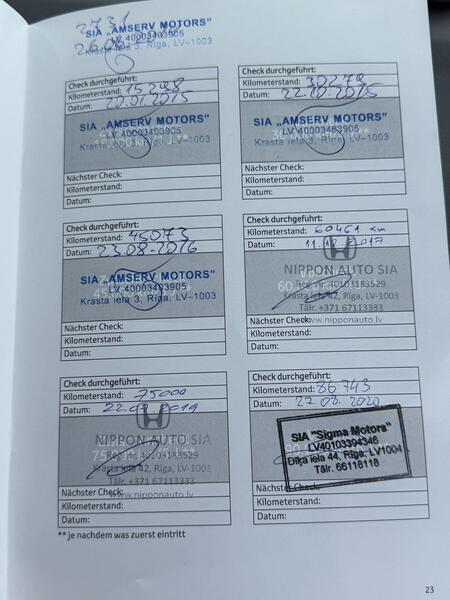 2731
SIA „AMSERV MOTORS"
LV 40003403905
Krasta iela 3, Rīga, LV-1003
Check durchgeführt:
Kilometerstand: 15298
Datum: 20.01.2015
SIA „AMSERV MOTORS"
LV 40003403905
Krasta iela 3, Rīga, LV-1003
Nächster Check:
Kilometerstand:
Datum:
Check durchgeführt:
Kilometerstand: 30279
Datum: 22.10.2015
SIA „AMSERV MOTORS"
LV 40003403905
Krasta iela 3, Rīga, LV-1003
Nächster Check:
Kilometerstand:
Datum:
Check durchgeführt:
Kilometerstand: 45073
Datum: 23.08.2016
SIA „AMSERV MOTORS"
LV 40003403905
Krasta iela 3, Rīga, LV-1003
Nächster Check:
Kilometerstand:
Datum:
Check durchgeführt:
Kilometerstand: 60461 km
Datum: 11.12.2017
NIPPON AUTO SIA
Reg. nr. 40103183529
Krasta iela 42, Rīga, LV-1003
Tālr. +371 67113333
www.nipponauto.lv
Nächster Check:
Kilometerstand:
Datum:
Check durchgeführt:
Kilometerstand: 75000
Datum: 22.02.2019
NIPPON AUTO SIA
Reg. nr. 40103183529
Krasta iela 42, Rīga, LV-1003
Tālr. +371 67113333
www.nipponauto.lv
Nächster Check:
Kilometerstand:
Datum:
Check durchgeführt:
Kilometerstand: 86743
Datum: 27.08.2020
SIA "Sigma Motors"
LV40103394346
Dīķa iela 44, Rīga, LV1004
Tālr. 66118118
Nächster Check:
Kilometerstand:
Datum:
** Je nachdem was zuerst eintritt
23